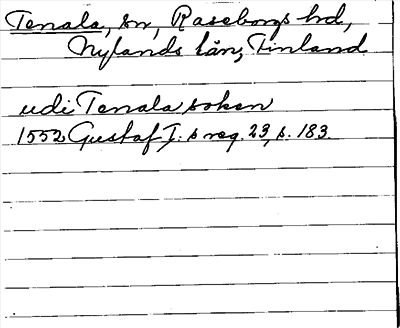 Tenala, sn, Raseborgs hd,
Nylands län, Finland
udi Tenala soken
1552 Gustaf I:s reg. 23, s. 183